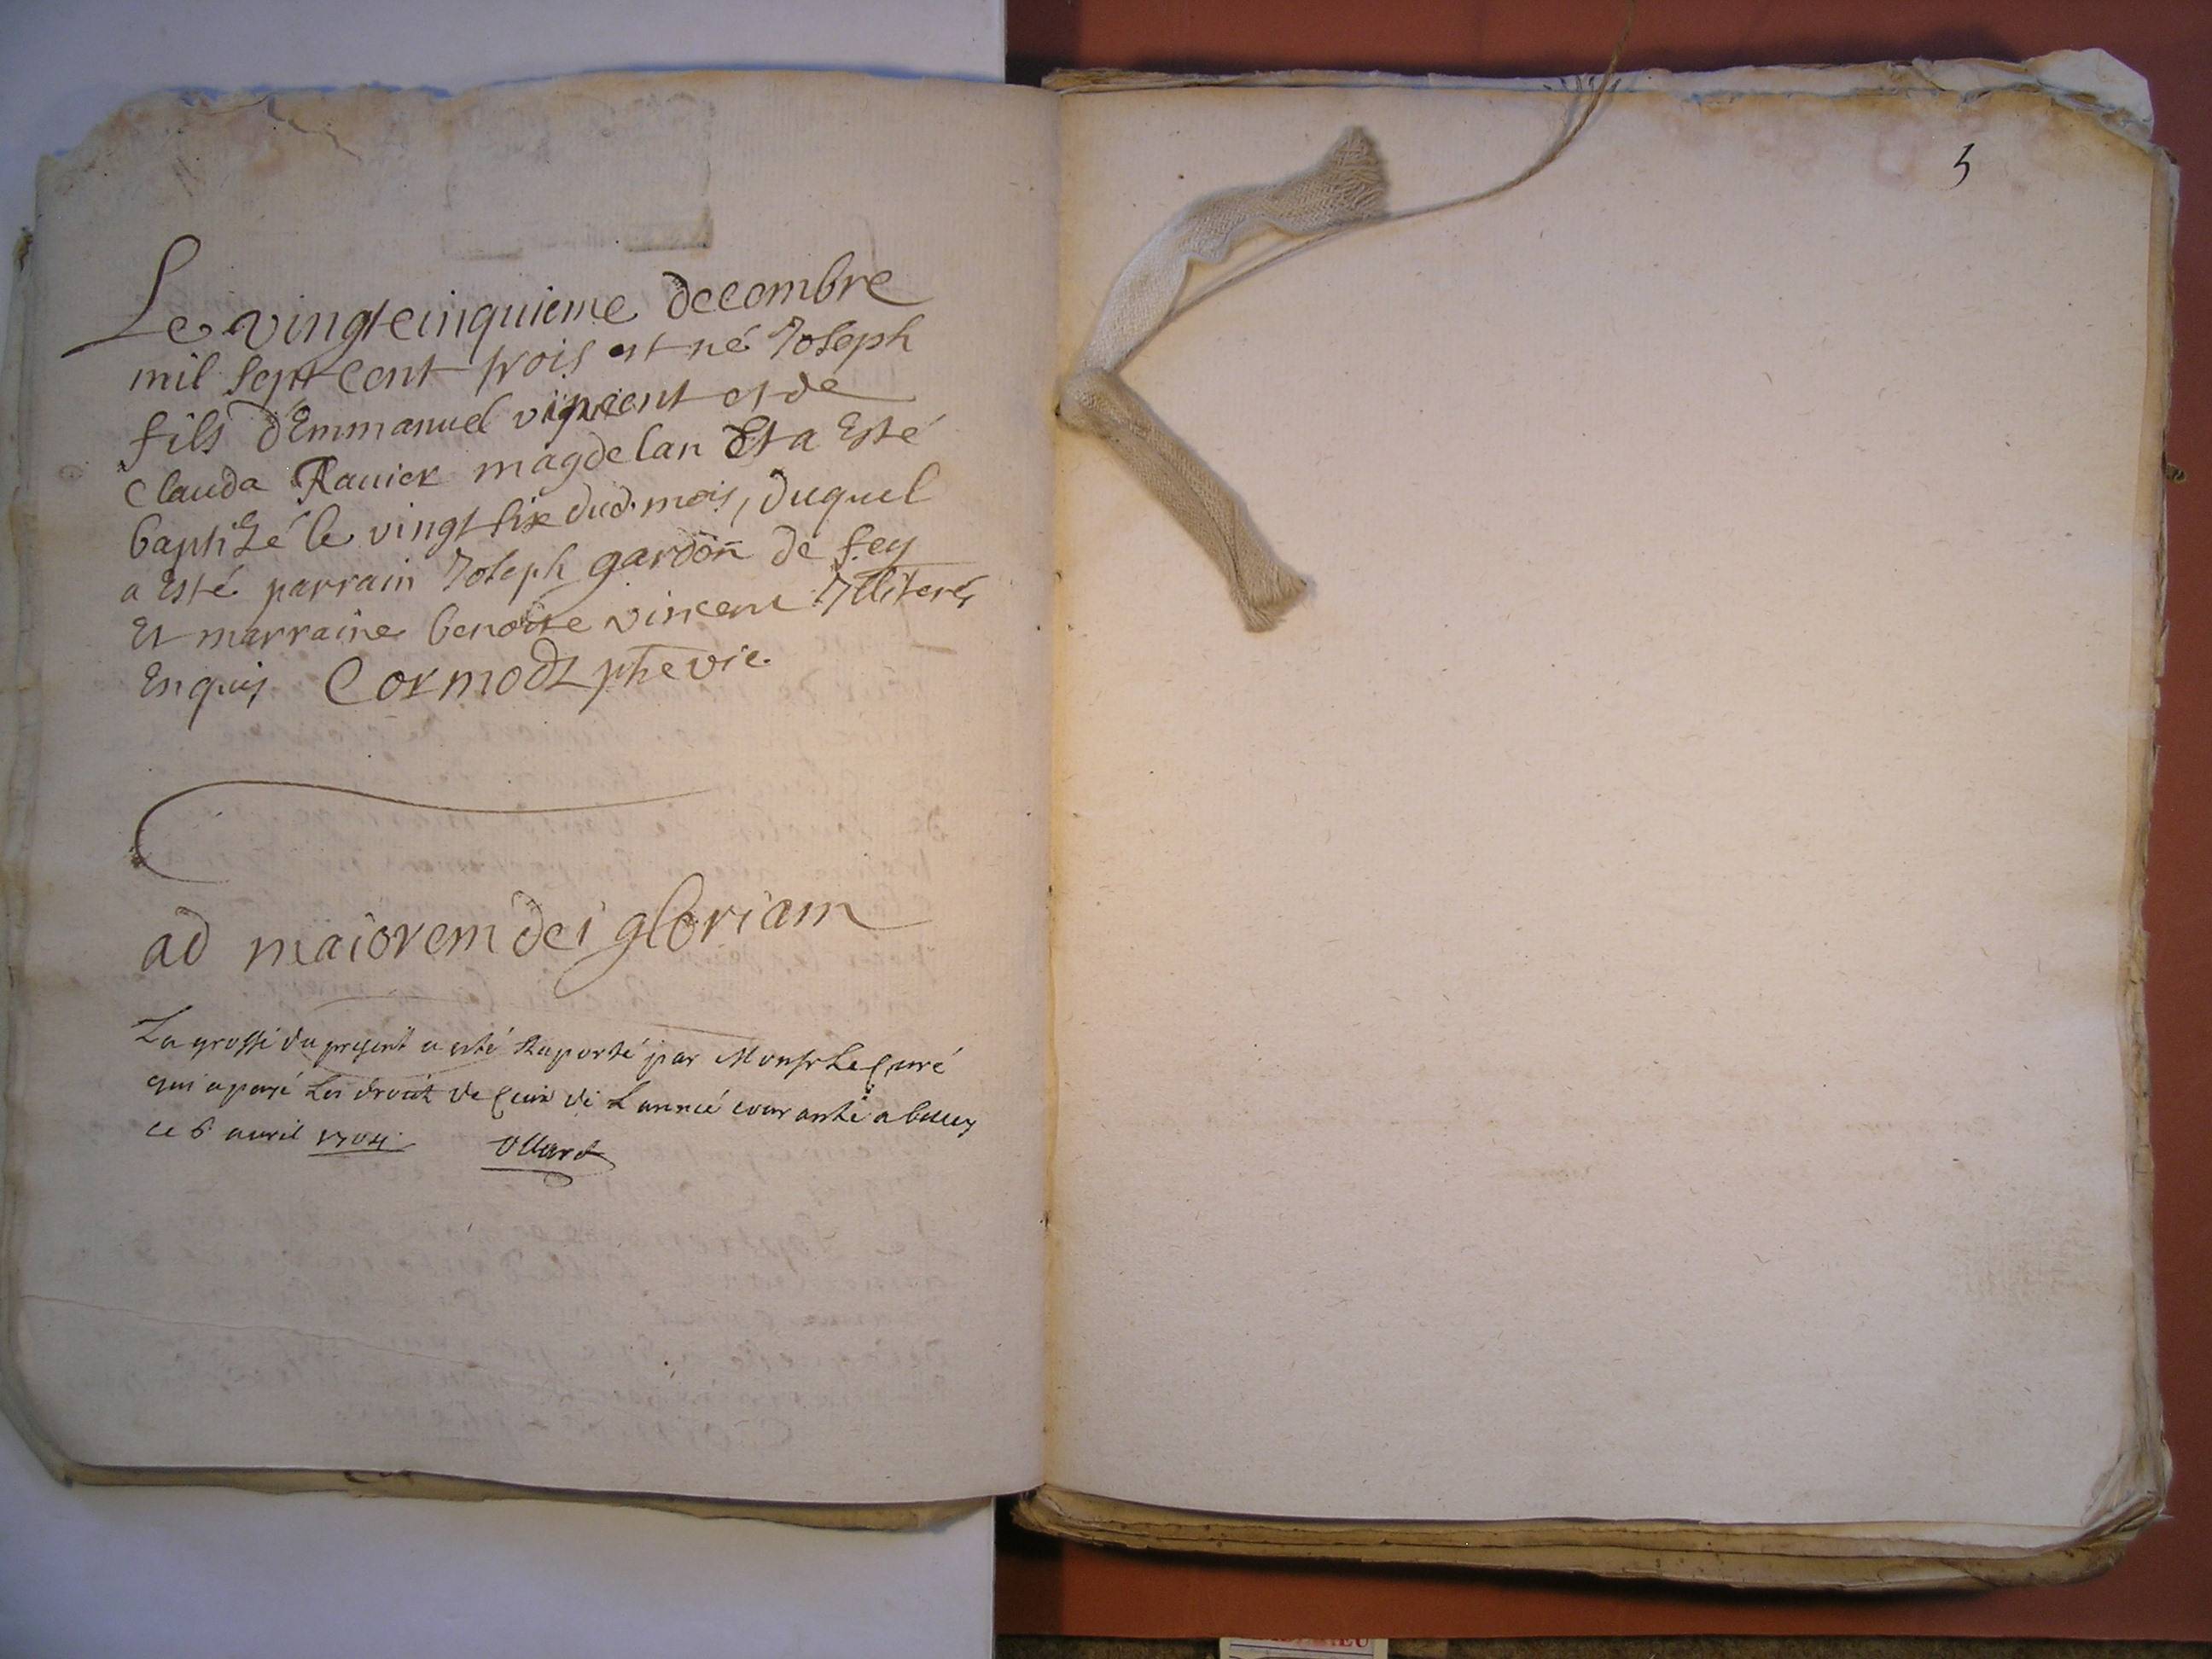 Le vingtcinquieme decembre
mil sept cent trois est né Joseph
fils d'Emmanuel vincent et de
Clauda Ravier magdelan Et a Esté
baptizé le vingt six dud. mois, duquel
a Esté parrain Joseph gardon de fey
Et marraine benoite vincent Illiterés
Enquis Cormodz pbre vic.
ad maiorem dei gloriam
La grosse du present a esté Raporté par Monsr Le Curé
qui a payé Les droict de de L'année courante a belley
ce 6 avril 1704. Ollard
5